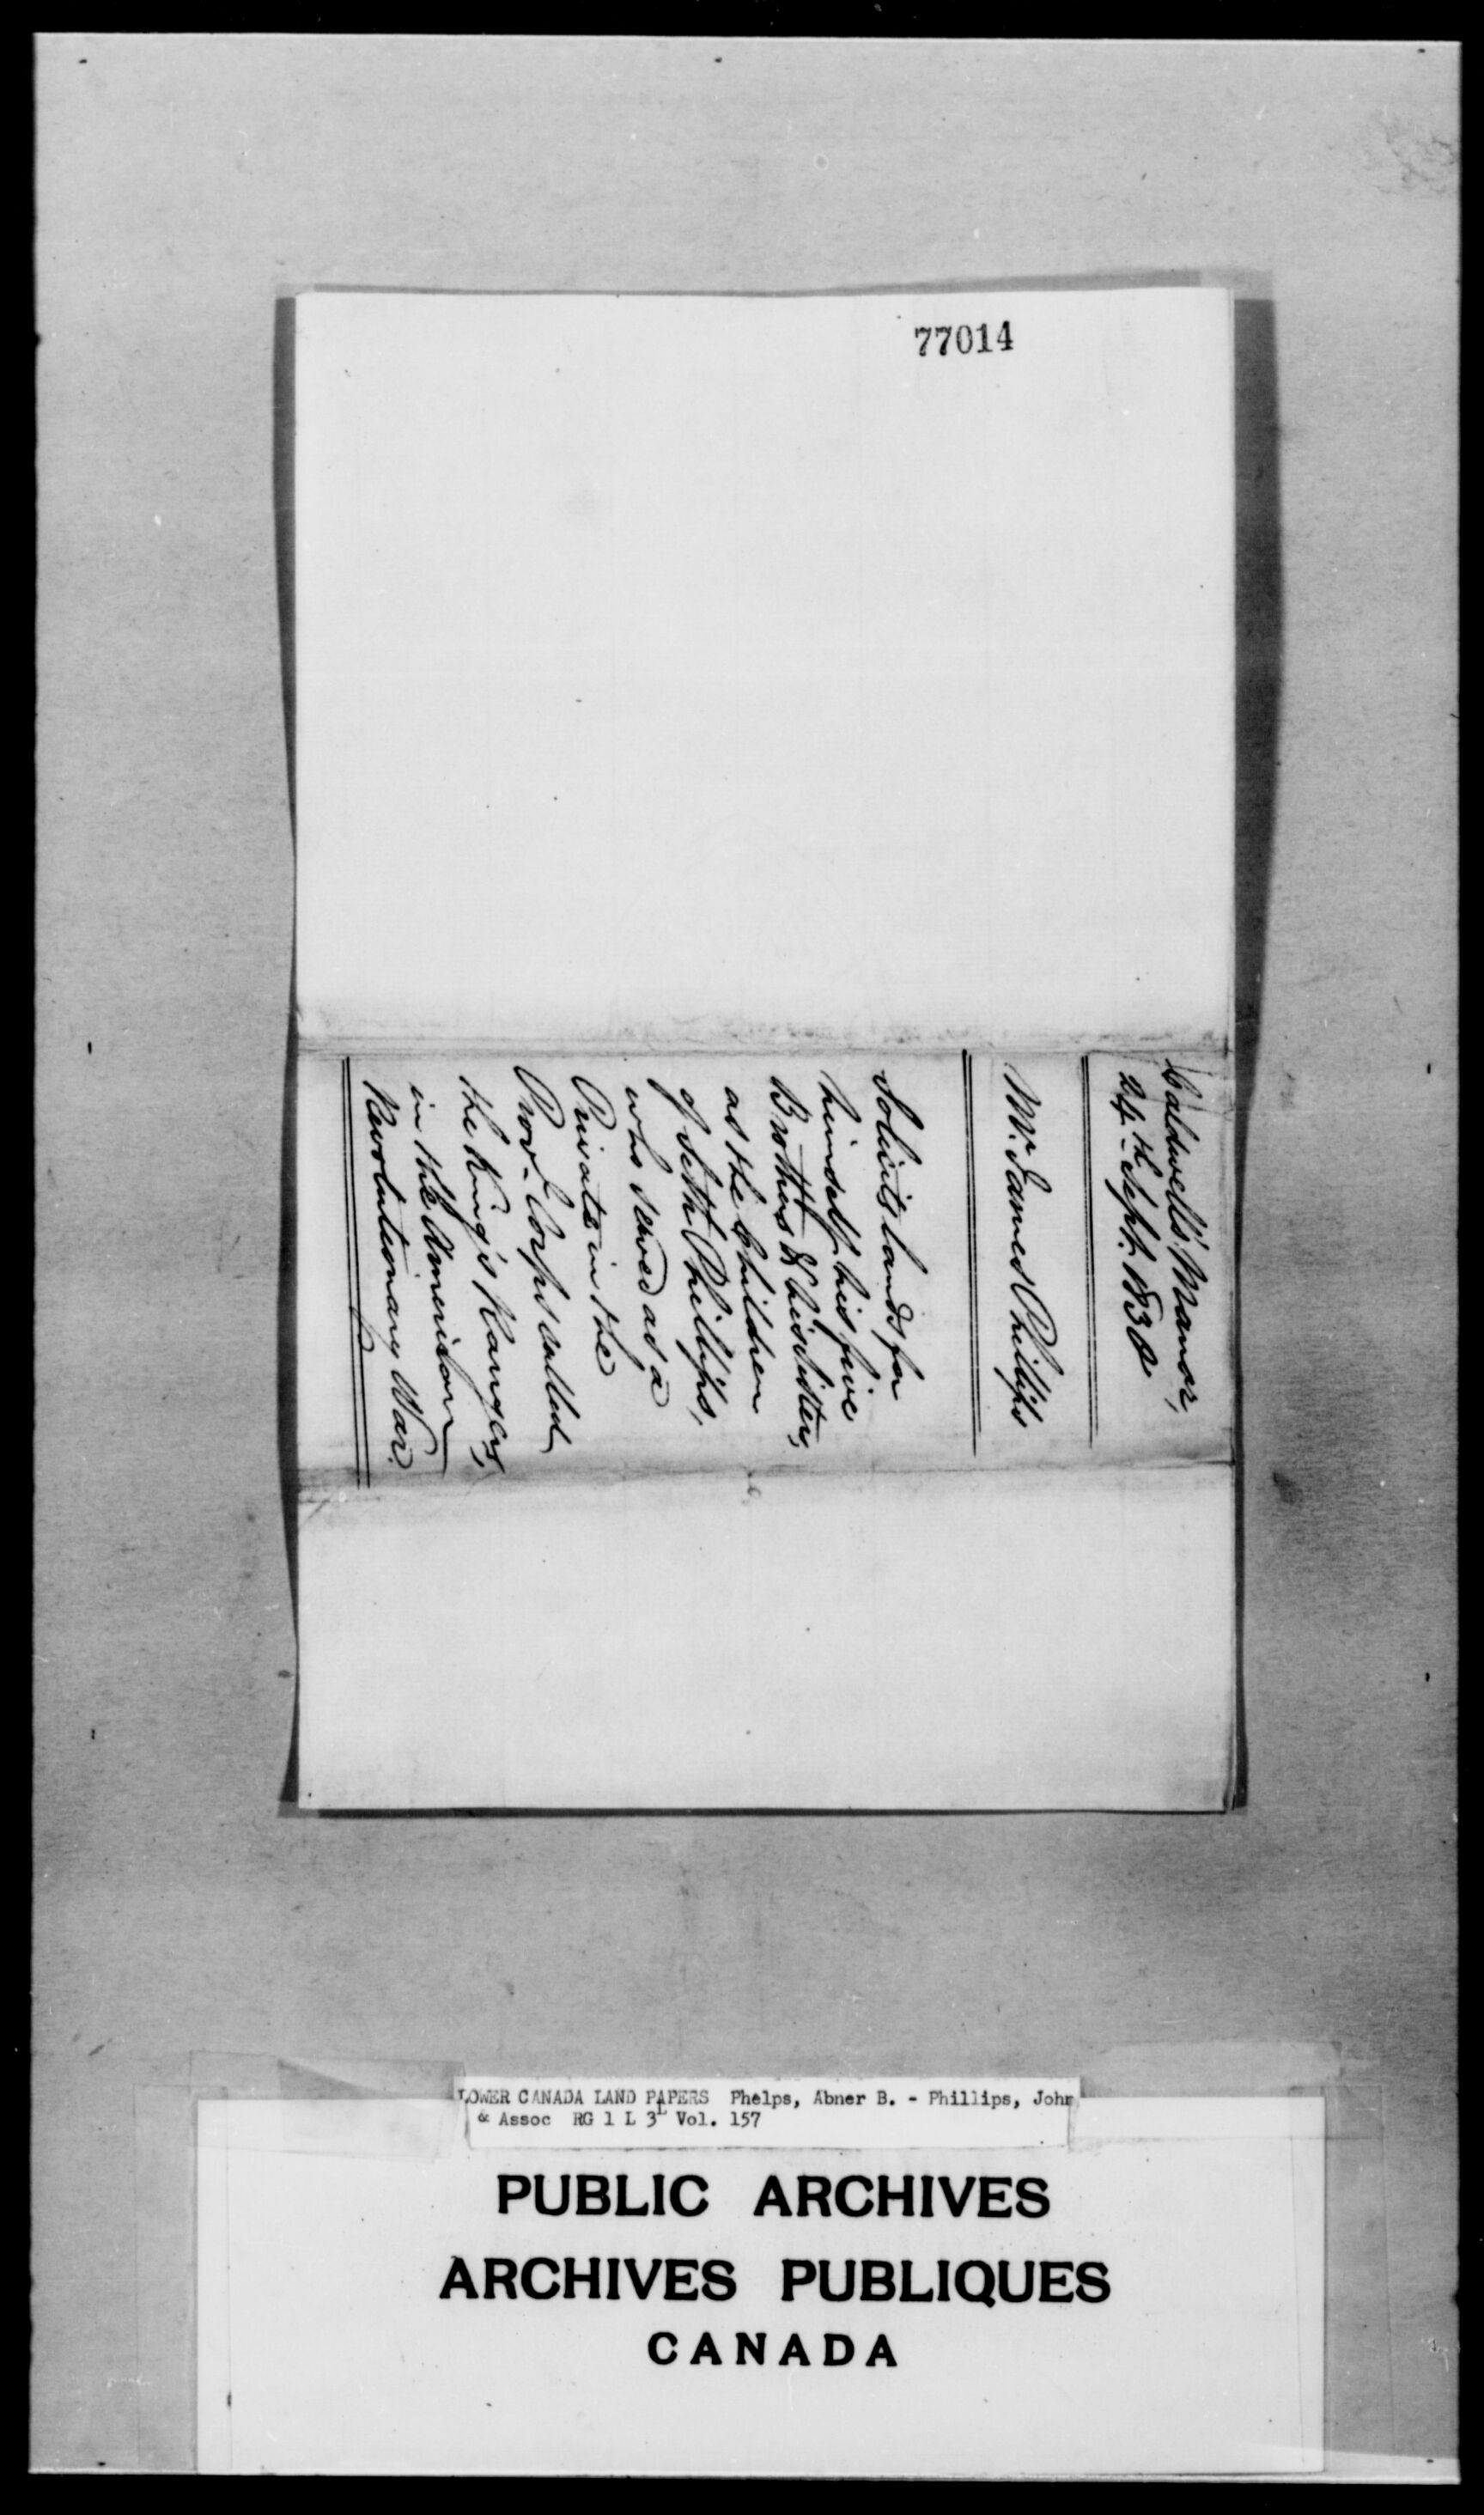 77014
Caldwell's Manor,
24th Sept. 1830
Mr. James Phillips
Solicits lands for
himself, his five
Brothers & his Sisters,
as the Children
of Seth Phillips,
who served as a
Private in the
Prov. Corps called
the King's Rangers,
in the American
Revolutionary War.
LOWER CANADA LAND PAPERS Phelps, Abner B. - Phillips, John
& Assoc RG 1 L 3L Vol. 157
PUBLIC ARCHIVES
ARCHIVES PUBLIQUES
CANADA